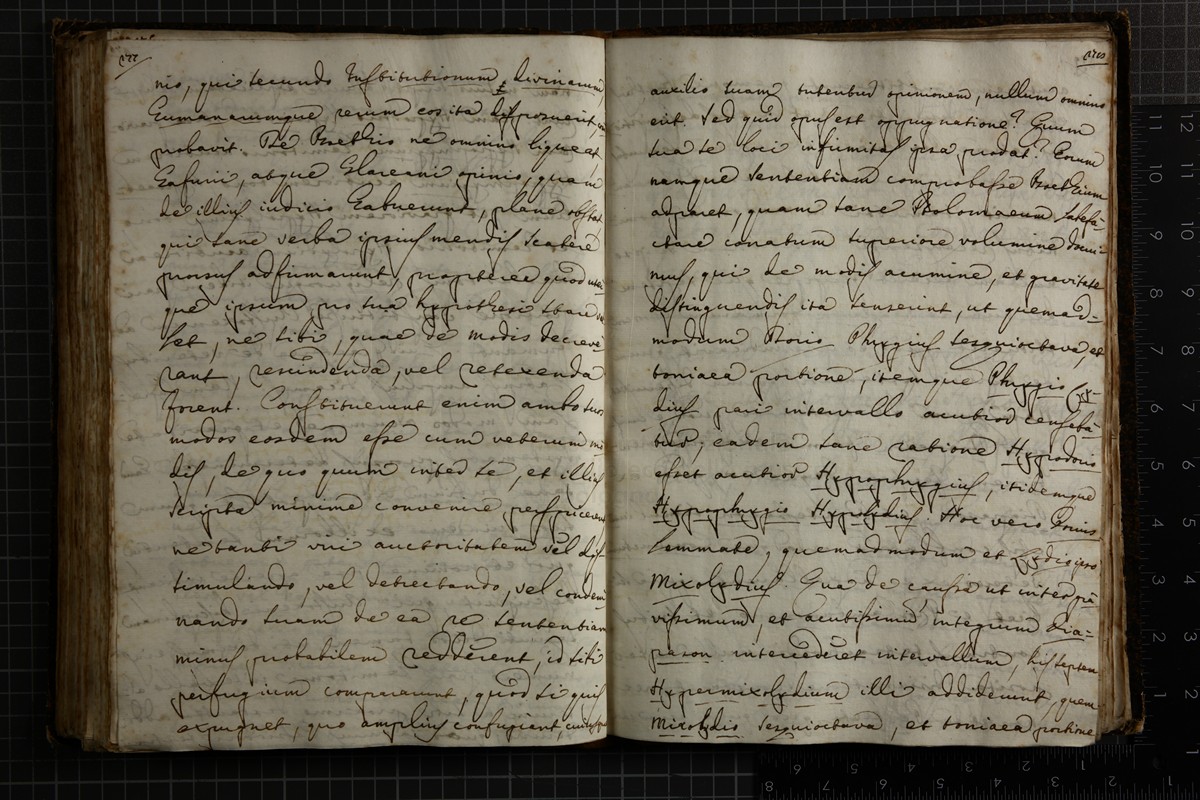 nio, qui secundo Institutionum divinarum,
Humanarumque rerum eos ita disposuerit,
probavit. De Boethio ne omnino liqueat
Gafurii, atque Glareani opinio, quam
de illius iudicio habuerunt, plane obstat
qui sane verba ipsius mendis scatere
prorsus adfirmarunt, propterea quod
que ipsum pro sua hypothesi stare
set, ne sibi, quae de modis decreve-
rant, rescindenda, vel retexenda
forent. Constituerunt enim ambo suos
modos eosdem esse cum veterum mo-
dis, de quo quum inter se, et illius
scripta minime convenire perspicerent
ne tanti viri auctoritatem vel dis-
simulando, vel detrectando, vel condem-
nando suam de ea re sententiam
minus probabilem redderent, id sibi
perfugium compararunt, quod si quis
expugnet, quo amplius confugiant,
auxilio suam tutentur opinionem, nullum omnino
erit. Sed quid opus est oppugnatione? Quum
sua se loci infirmitas ipsa prodat? Eorum
namque sententiam comprobasse Boethium
adparet, quam sane Ptolomaeum labefa-
ctare conatum superiore volumine docui-
mus, qui de modis acumine, et gravitate
distinguendis ita senserint, ut quemad-
modum Dorio Phrygius sesquioctava, et
toniaea portione, itemque Phrygio Ly-
dius pari intervallo acutior censeba-
tur, eadem sane ratione Hypodorio
esset acutior Hypophrygius, itidemque
Hypophrygio Hypolydius. Hoc vero Dorius
lemmate, quemadmodum et Lydio ipso
Mixolydius. Qua de causa ut inter gra-
vissimum, et acutissimum integrum dia-
pason intercederet intervallum, his septem
Hypermixolydium illi addiderunt, quem
Mixolydio sesquioctava, et toniaea portione